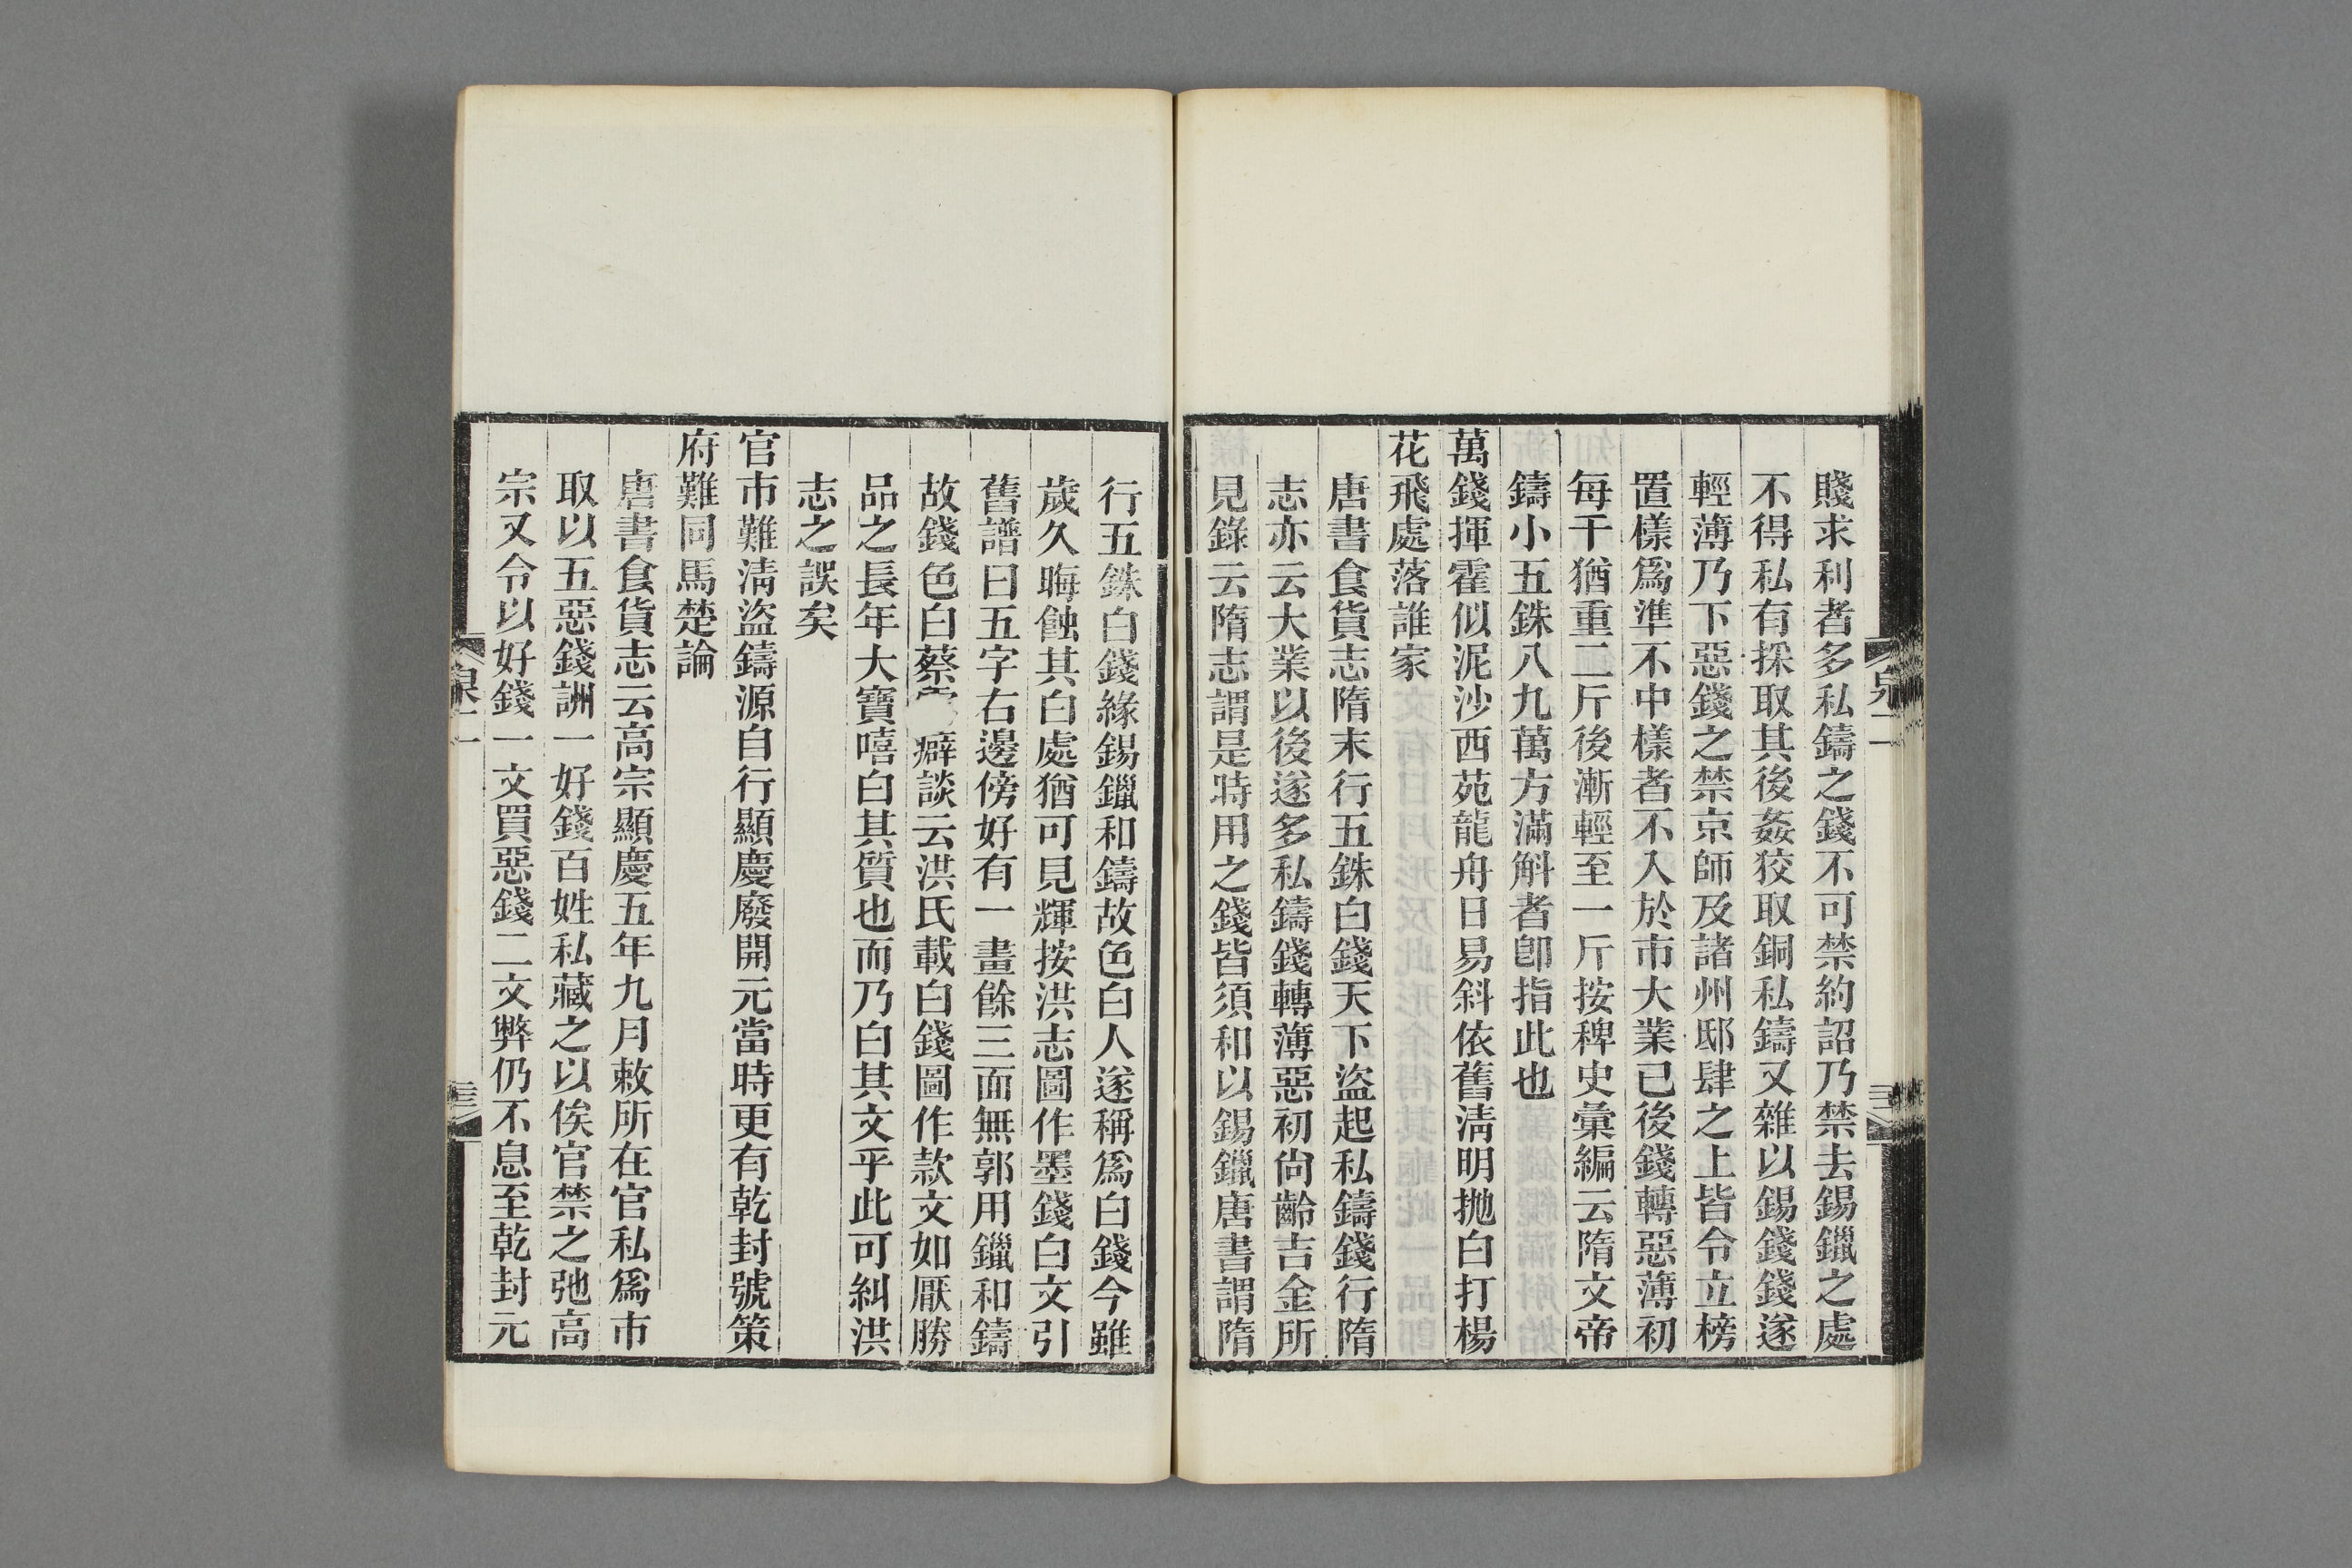 賤求利者多私鑄之錢不可禁約詔乃禁去錫鑞之處
不得私有採取其後姦狡取銅私鑄又雜以錫錢錢遂
輕薄乃下惡錢之禁京師及諸州邸肆之上皆令立榜
置樣爲準不中樣者不入於市大業已後錢轉惡薄初
每千猶重二斤後漸輕至一斤按稗史彙編云隋文帝
鑄小五銖八九萬方滿斛者卽指此也
萬錢揮霍似泥沙西苑龍舟日易斜依舊淸明拋白打楊
花飛處落誰家
唐書食貨志隋末行五銖白錢天下盜起私鑄錢行隋
志亦云大業以後遂多私鑄錢轉薄惡初尙齡吉金所
見錄云隋志謂是時用之錢皆須和以錫鑞唐書謂隋
泉二
三
行五銖白錢緣錫鑞和鑄故色白人遂稱爲白錢今雖
歲久晦蝕其白處猶可見輝按洪志圖作墨錢白文引
舊譜曰五字右邊傍好有一畫餘三面無郭用鑞和鑄
故錢色白蔡雲癖談云洪氏載白錢圖作款文如厭勝
品之長年大寶嘻白其質也而乃白其文乎此可糾洪
志之誤矣
官市難淸盜鑄源自行顯慶廢開元當時更有乾封號策
府難同馬楚論
唐書食貨志云高宗顯慶五年九月敕所在官私爲市
取以五惡錢詶一好錢百姓私藏之以俟官禁之弛高
宗又令以好錢一文買惡錢二文弊仍不息至乾封元
泉二
三